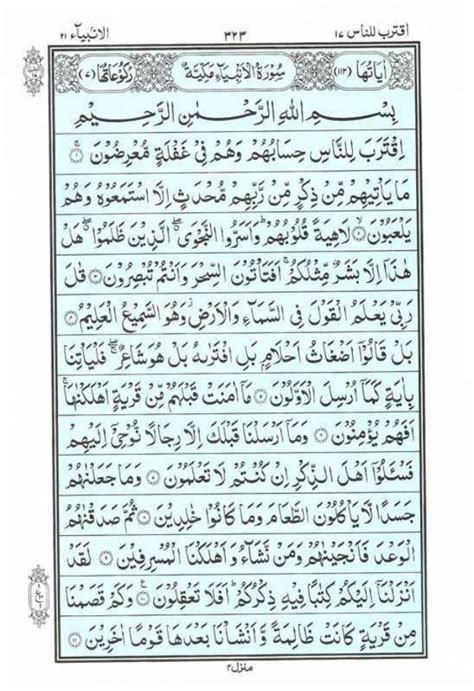 اقترب للناس ١٧ ٣٢٣ الانبيآء ٢١
اٰيَاتُهَا (١١٢) سُوْرَةُ الْاَنْۢبِيَآءِ مَكِّيَّةٌ رُكُوْعَاتُهَا (٧)
بِسْمِ اللّٰهِ الرَّحْمٰنِ الرَّحِيْمِ
اِقْتَرَبَ لِلنَّاسِ حِسَابُهُمْ وَهُمْ فِيْ غَفْلَةٍ مُّعْرِضُوْنَ ۚ ١
مَا يَاْتِيْهِمْ مِّنْ ذِكْرٍ مِّنْ رَّبِّهِمْ مُّحْدَثٍ اِلَّا اسْتَمَعُوْهُ وَهُمْ
يَلْعَبُوْنَ ۙ ٢ لَاهِيَةً قُلُوْبُهُمْ ؕ وَاَسَرُّوا النَّجْوَى ۖ الَّذِيْنَ ظَلَمُوْا ۖ هَلْ
هٰذَآ اِلَّا بَشَرٌ مِّثْلُكُمْ ۚ اَفَتَاْتُوْنَ السِّحْرَ وَاَنْتُمْ تُبْصِرُوْنَ ٣ قٰلَ
رَبِّيْ يَعْلَمُ الْقَوْلَ فِي السَّمَآءِ وَالْاَرْضِ ؗ وَهُوَ السَّمِيْعُ الْعَلِيْمُ ٤
بَلْ قَالُوْٓا اَضْغَاثُ اَحْلَامٍۭ بَلِ افْتَرٰىهُ بَلْ هُوَ شَاعِرٌ ۖۚ فَلْيَاْتِنَا
بِاٰيَةٍ كَمَآ اُرْسِلَ الْاَوَّلُوْنَ ٥ مَآ اٰمَنَتْ قَبْلَهُمْ مِّنْ قَرْيَةٍ اَهْلَكْنٰهَا ۚ
اَفَهُمْ يُؤْمِنُوْنَ ٦ وَمَآ اَرْسَلْنَا قَبْلَكَ اِلَّا رِجَالًا نُّوْحِيْٓ اِلَيْهِمْ
فَسْـَٔلُوْٓا اَهْلَ الذِّكْرِ اِنْ كُنْتُمْ لَا تَعْلَمُوْنَ ٧ وَمَا جَعَلْنٰهُمْ
جَسَدًا لَّا يَاْكُلُوْنَ الطَّعَامَ وَمَا كَانُوْا خٰلِدِيْنَ ٨ ثُمَّ صَدَقْنٰهُمُ
الْوَعْدَ فَاَنْجَيْنٰهُمْ وَمَنْ نَّشَآءُ وَاَهْلَكْنَا الْمُسْرِفِيْنَ ٩ لَقَدْ
اَنْزَلْنَآ اِلَيْكُمْ كِتٰبًا فِيْهِ ذِكْرُكُمْ ؕ اَفَلَا تَعْقِلُوْنَ ١٠ وَكَمْ قَصَمْنَا
مِنْ قَرْيَةٍ كَانَتْ ظَالِمَةً وَّاَنْشَاْنَا بَعْدَهَا قَوْمًا اٰخَرِيْنَ ١١
منزل ٤